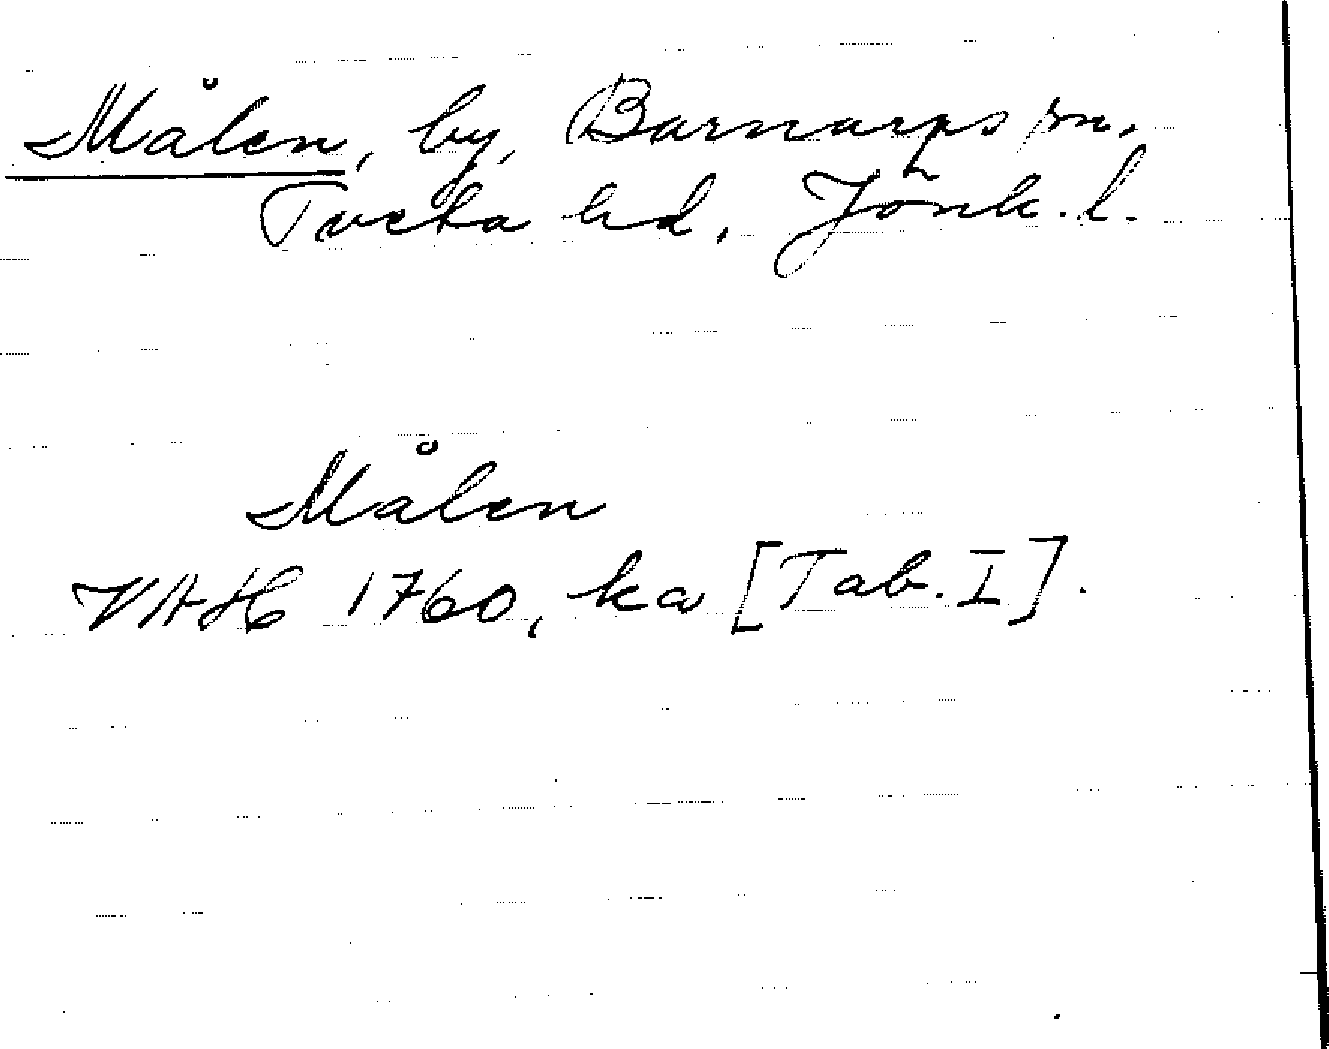 Målen, by, Barnarps sn.
Tveta hd, Jönk. l.
Målen
VAH 1760, ka [Tab. I].